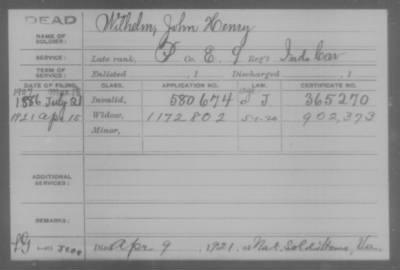 DEAD
NAME OF SOLDIER: Wilhelm, John Henry
SERVICE: Late rank, P Co. E, 9 Reg't Ind. Cav
TERM OF SERVICE: Enlisted , 1 Discharged , 1
DATE OF FILING. CLASS. APPLICATION NO. LAW. CERTIFICATE NO.
1886 July 21 Invalid, 580674 J 365270
1921 Apr 15 Widow, 1172802 5-1-20 902,373
Minor,
ADDITIONAL SERVICES:
REMARKS:
Died Apr 9, 1921, at Nat. Sold. Home, Va.